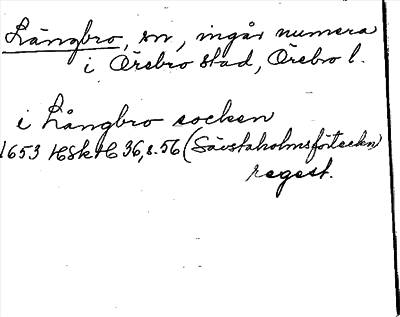 Långbro, sn, ingår numera
i Örebro stad, Örebro l.
i Långbro socken
1653 HSH 36, s. 56 (Säfstaholmsförteckn)
regest.